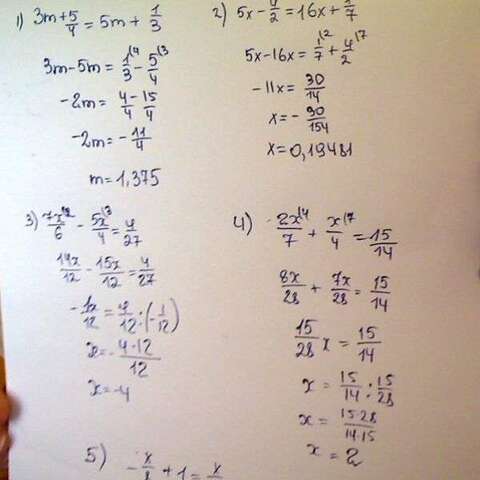 1) 3m + 5/4 = 5m + 1/3
3m - 5m = 1/3 - 5/4
-2m = 4/4 - 15/4
-2m = - 11/4
m = 1,375
2) 5x - 4/2 = 16x + 2/7
5x - 16x = 2/7 + 4/2
-11x = 30/14
x = - 30/154
x = 0,19481
3) 7x/6 - 5x/4 = 4/27
14x/12 - 15x/12 = 4/27
- 1x/12 = 4/12 : (- 1/12)
x = - 4·12/12
x = -4
4) 2x/7 + x/4 = 15/14
8x/28 + 7x/28 = 15/14
15/28 x = 15/14
x = 15/14 : 15/28
x = 15·28/14·15
x = 2
5) - x/8 + 1 = x